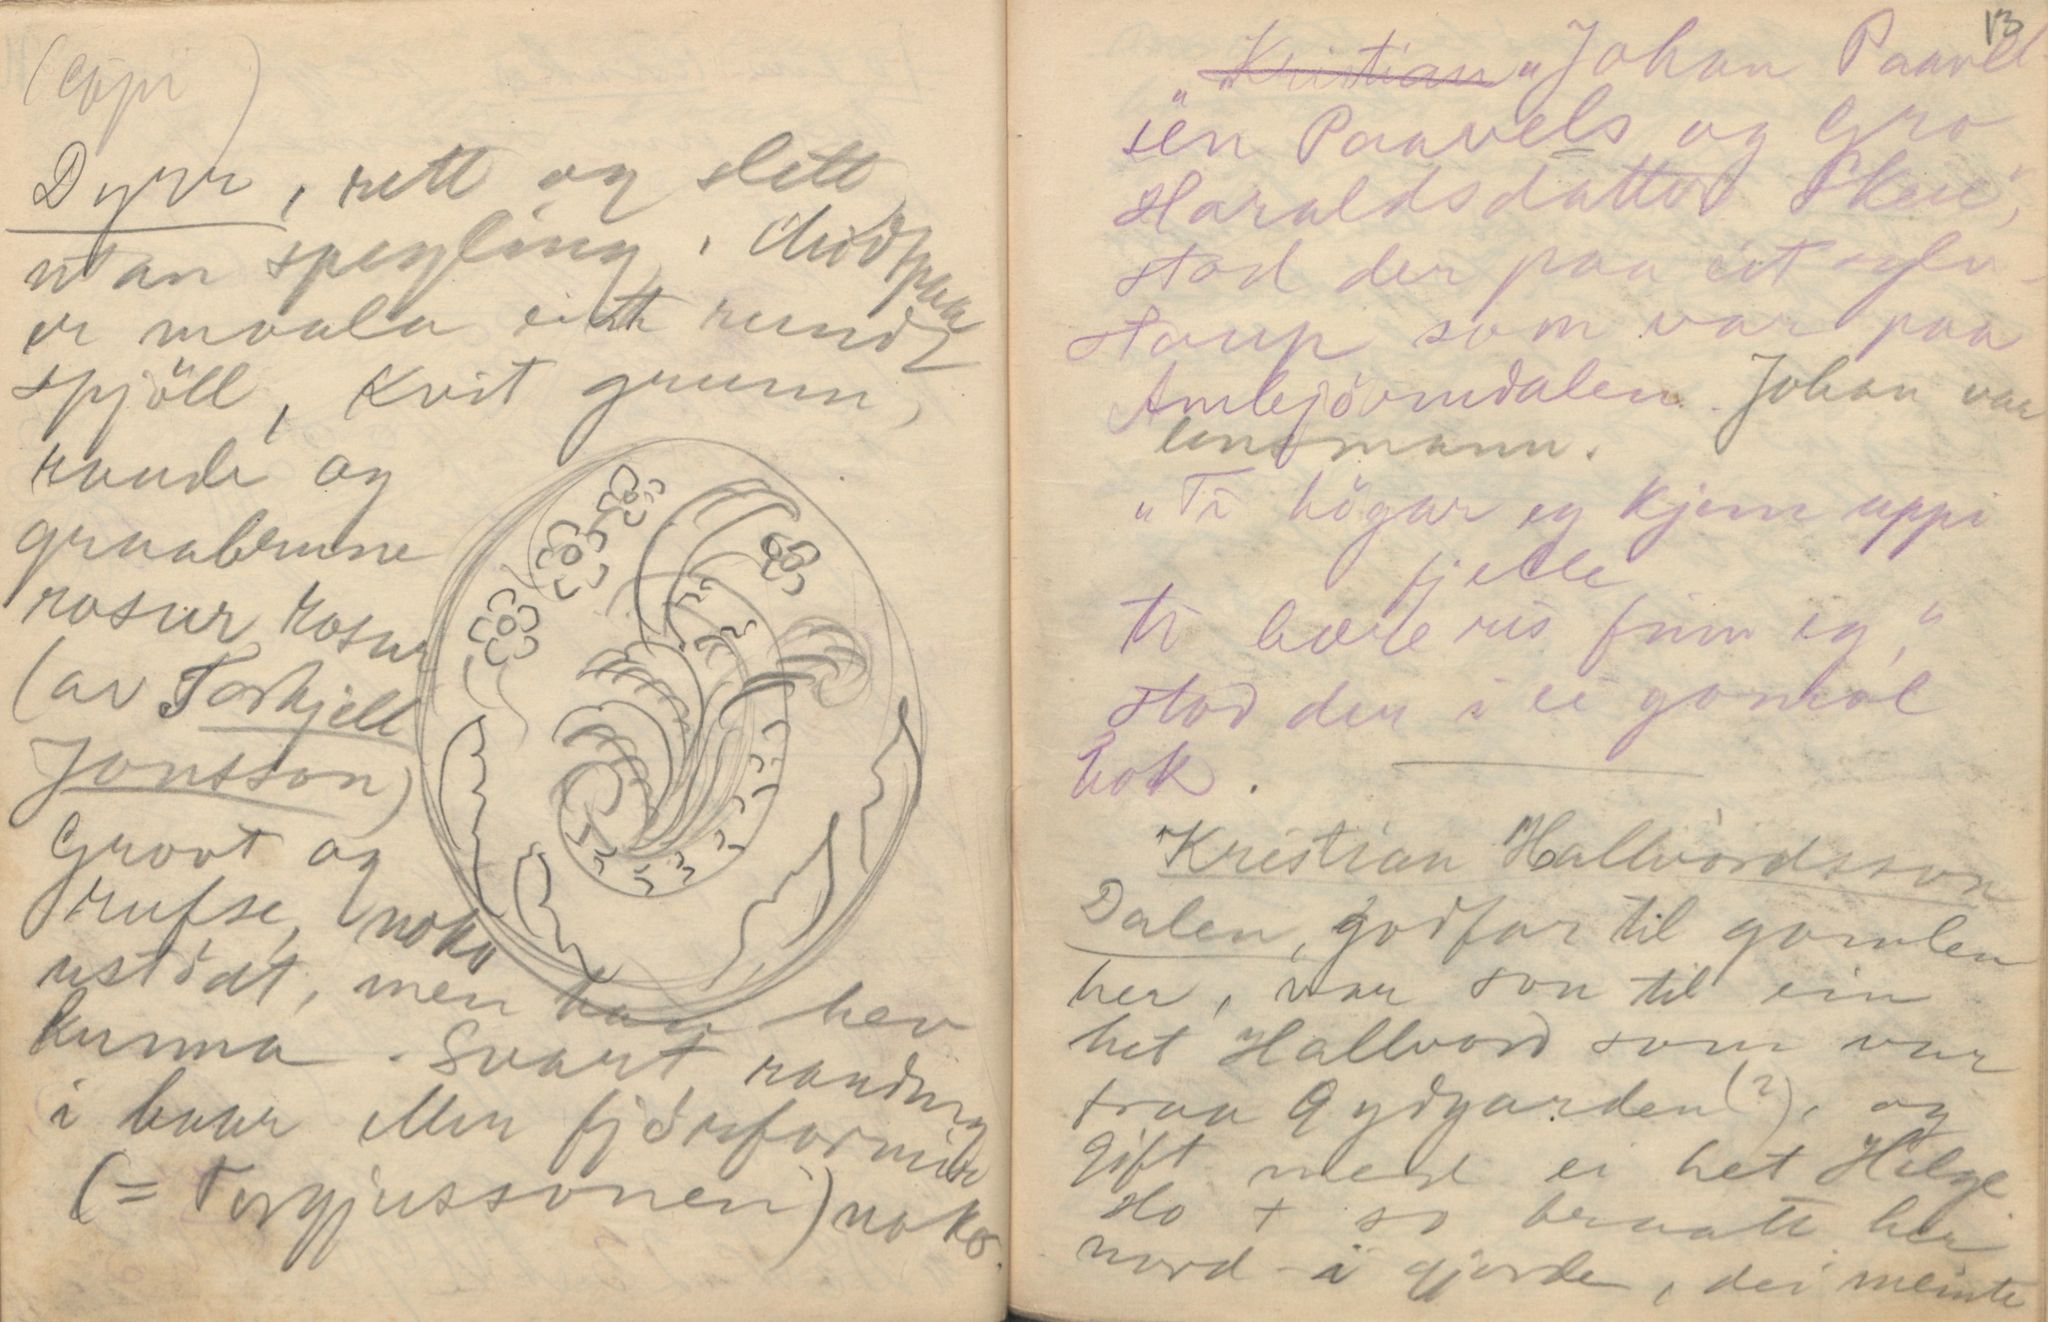 (Copi)
Dyrr, rett og slett
utan spegling. Midtpaa
er maala eitt rundt
spjöll, kvit grunn,
raude og
graabrune
rosur, rosur
(av Torkjell
Jonsson)
Grovt og
rufse, noko
ustödt, men han hev
kunna. Svart, randing
i baar ellen fjörformir
(= Torgjussonen) noko.
13
"Kristian" Johan Paavel-
"sen Paavels og Gro
Haraldsdatter Skeie",
stod der paa eit sylv-
staup som var paa
Ambjörndalen. Johan var
lensmann.
"Ti högar eg kjem uppi
fjelle
ti bære ris finn eg,"
stod der i ei gomol
bok.
Kristian Hallvordsson
Dalen, godfar til gamlen
her, var son til ein
het Hallvord som var
fraa Gydgarden (?), og
gift med ei het Hilge
Ho + so braatt her
nord i gjorde, dei meinte